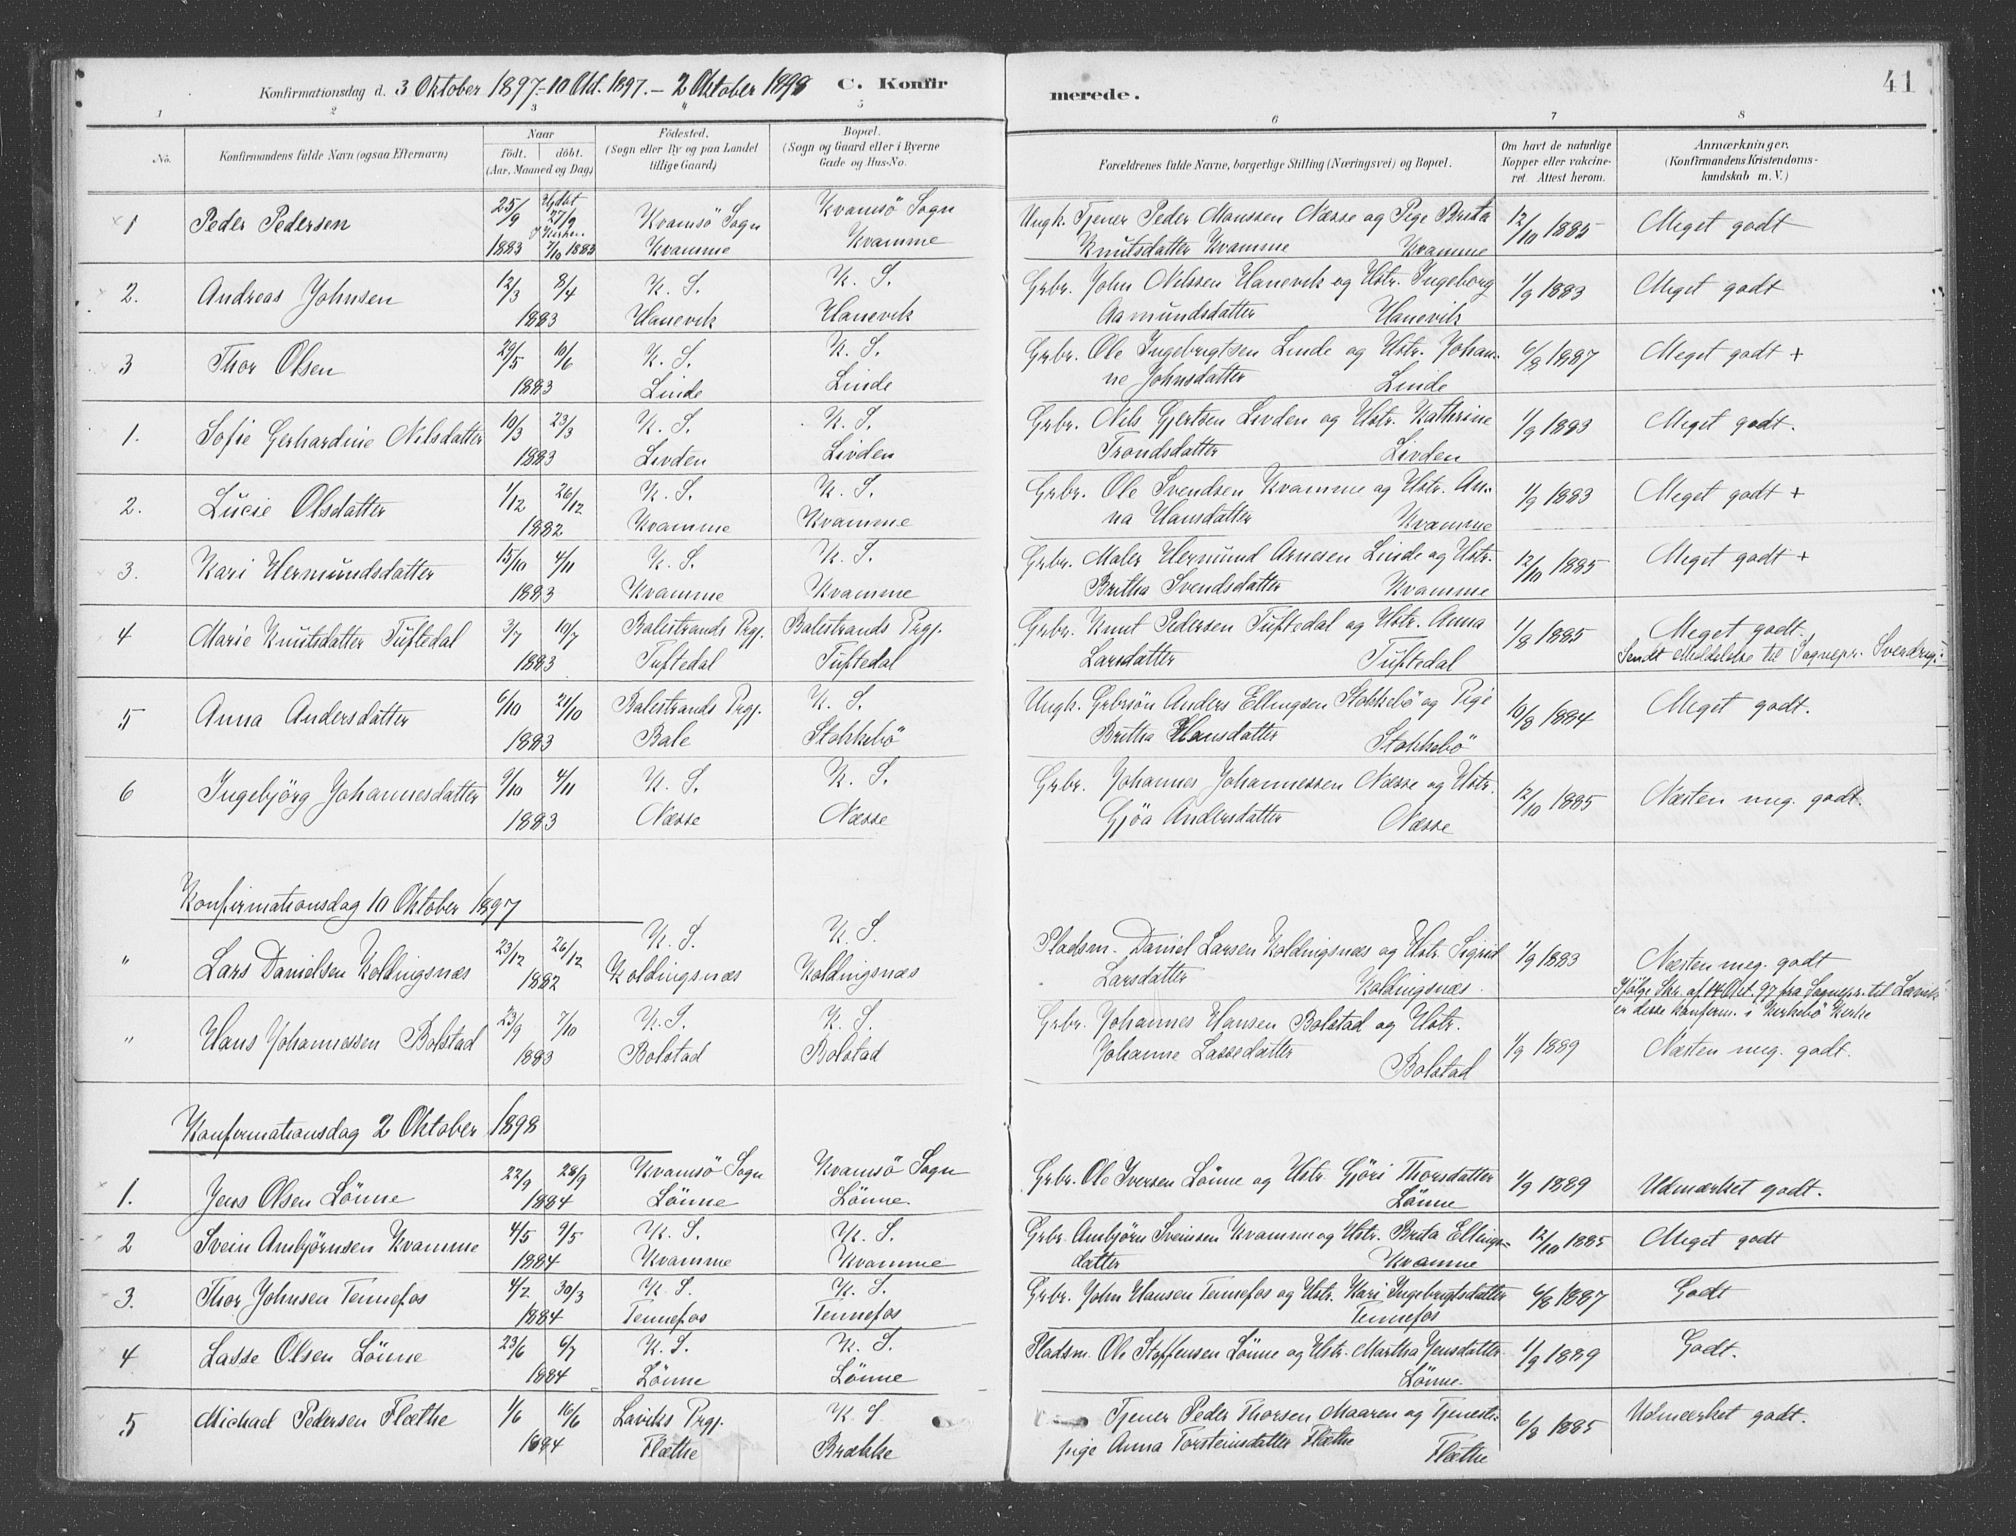 Konfirmationsdag d. 3 Oktober 1897 - 10 Okt. 1897. - 2 Oktober 1898 C. Konfir
merede. 41
1 2 3 4 5 6 7 8
No. Konfirmandens fulde Navn (ogsaa Efternavn) Naar Födested. Bopæl. Forældrenes fulde Navne, borgerlige Stilling (Næringsvei) og Bopæl. Om havt de naturlige Anmærkninger.
födt. döbt. (Sogn eller By og paa Landet (Sogn og Gaard eller i Byerne Kopper eller vakcine- (Konfirmandens Kristendoms-
(Aar, Maaned og Dag) tillige Gaard) Gade og Hus-No. ret. Attest herom. kundskab m. V.)
1 Peder Pedersen 25/9 Hjdbt 27/9 Kvamsö Sogn Kvamsö Sogn Ungk. Tjener Peder Monssen Næsse og Pige Brita 12/10 1885 Meget godt
1883 i Kirken 7/10 1883 Kvamme Kvamme Knutsdatter Kvamme Kvamme
2. Andreas Johnsen 12/3 8/4 K. S. K. S. Grbr. John Nilssen Hanevik og Hstr. Ingeborg 1/9 1883 Meget godt
1883 Hanevik Hanevik Aamundsdatter Hanevik
3 Thor Olsen 29/5 10/6 K. S. K. S. Grbr. Ole Ingebrigtsen Linde og Hstr. Johan- 6/8 1887 Meget godt +
1883 Linde Linde ne Johnsdatter Linde
1. Sofie Gerhardine Nilsdatter 10/3 23/3 K. S. K. S. Grbr. Nils Gjertsen Livden og Hstr. Kathrine 1/9 1883 Meget godt.
1883 Livden Livden Trondsdatter Livden
2. Lucie Olsdatter 1/12 26/12 K. S. K. S. Grbr. Ole Svendsen Kvamme og Hstr. An- 1/9 1883 Meget godt +
1882 Kvamme Kvamme na Hansdatter Kvamme
3. Kari Hermundsdatter 15/10 4/11 K. S. K. S. Grbr. Maler Hermund Arnesen Linde og Hstr. 12/10 1885 Meget godt +
1883 Kvamme Kvamme Britha Svendsdatter Kvamme
4 Marie Knutsdatter Tuftedal 3/7 10/7 Balestrands Prgj. Balestrands Prgj. Grbr. Knut Pedersen Tuftedal og Hstr. Anna 1/8 1885 Meget godt.
1883 Tuftedal Tuftedal Larsdatter Tuftedal Sendt Meddelelse til Sognepr. Sverdrup.
5 Anna Andersdatter 6/10 21/10 Balestrands Prgj. K. S. Ungk. Grbrsön Anders Ellingsen Stokkebö og Pige 10/8 1894 Meget godt.
1883 Bale Stokkebö Britha Hansdatter Stokkebö
6 Ingebjörg Johannesdatter 9/10 4/11 K. S. K. S. Grbr. Johannes Johannessen Næsse og Hstr. 12/10 1885 Næsten meg. godt.
1883 Næsse Næsse Gjöa Andersdatter Næsse
Konfirmationsdag 10 Oktober 1897
" Lars Danielsen Koldingsnæs 23/12 26/12 K. S. K. S. Pladsm. Daniel Larsen Koldingsnæs og Hstr. Sigrid 1/9 1883 Næsten meg. godt
1882 Koldingsnæs Koldingsnæs Larsdatter Koldingsnæs. Ifölge Skr. af 14 Okt. 97 fra Sognepr. til Lavik
er disse konfirm. i Kirkebö Kirke
" Hans Johannessen Bolstad 23/9 7/10 K. S. K. S. Grbr. Johannes Hansen Bolstad og Hstr. 1/9 1889 Næsten meg. godt.
1883 Bolstad Bolstad Johanne Lassedatter Bolstad
Konfirmationsdag 2 Oktober 1898
1. Jens Olsen Lönne 22/9 28/9 Kvamsö Sogn Kvamsö Sogn Grbr. Ole Iversen Lönne og Hstr. Gjöri Thorsdatter 1/9 1889 Udmærket godt.
1884 Lönne Lönne. Lönne
2 Svein Ambjörnsen Kvamme 4/5 9/5 K. S. K. S. Grbr. Ambjörn Sveinsen Kvamme og Hstr. Brita Ellings- 12/10 1885 Meget godt
1884 Kvamme Kvamme datter Kvamme
3. Thor Johnsen Tennefos 4/2 30/3 K. S. K. S. Grbr. John Hansen Tennefos og Hstr. Kari Ingebrigtsdatter 6/8 1887 Godt
1884 Tennefos Tennefos Tennefos
4 Lasse Olsen Lönne 23/6 6/7 K. S. K. S. Pladsm. Ole Steffensen Lönne og Hstr. Martha Jensdatter 1/9 1889 Godt.
1884 Lönne Lönne Lönne.
5 Michael Pedersen Flæthe 1/6 16/6 Laviks Prgj. K. S Tjener Peder Thorsen Maaren og Tjeneste- 6/8 1885 Udmærket godt.
1884 Flæthe Brække pige Anna Torsteinsdatter Flæthe Flæthe